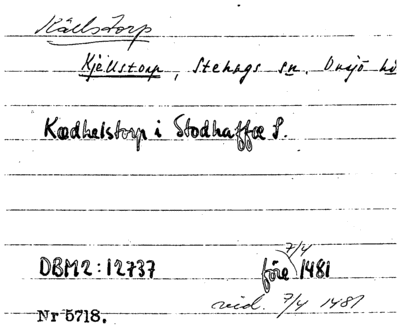 Källstorp
Kjellstorp, Stehags sn. Onsjö hd
Kædhelstorp i Stodhaffæ S.
7/4
DBM2:12737 före 1481
vid. 7/4 1481
Nr 5718.